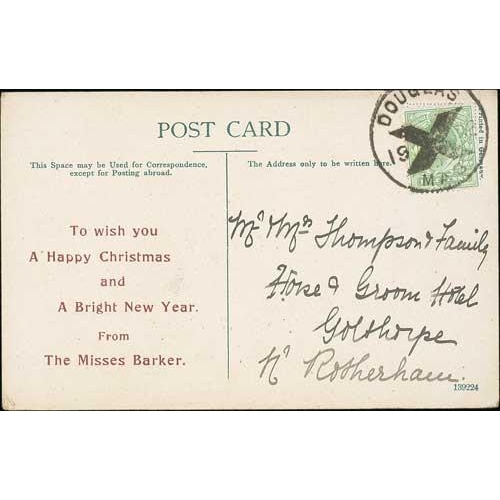 POST CARD
This Space may be Used for Correspondence,
except for Posting abroad.
The Address only to be written here.
DOUGLAS
19
Printed in Germany.
To wish you
A Happy Christmas
and
A Bright New Year.
From
The Misses Barker.
Mr & Mrs Thompson & Family
Horse & Groom Hotel
Golthorpe
Nr Rotherham.
139224